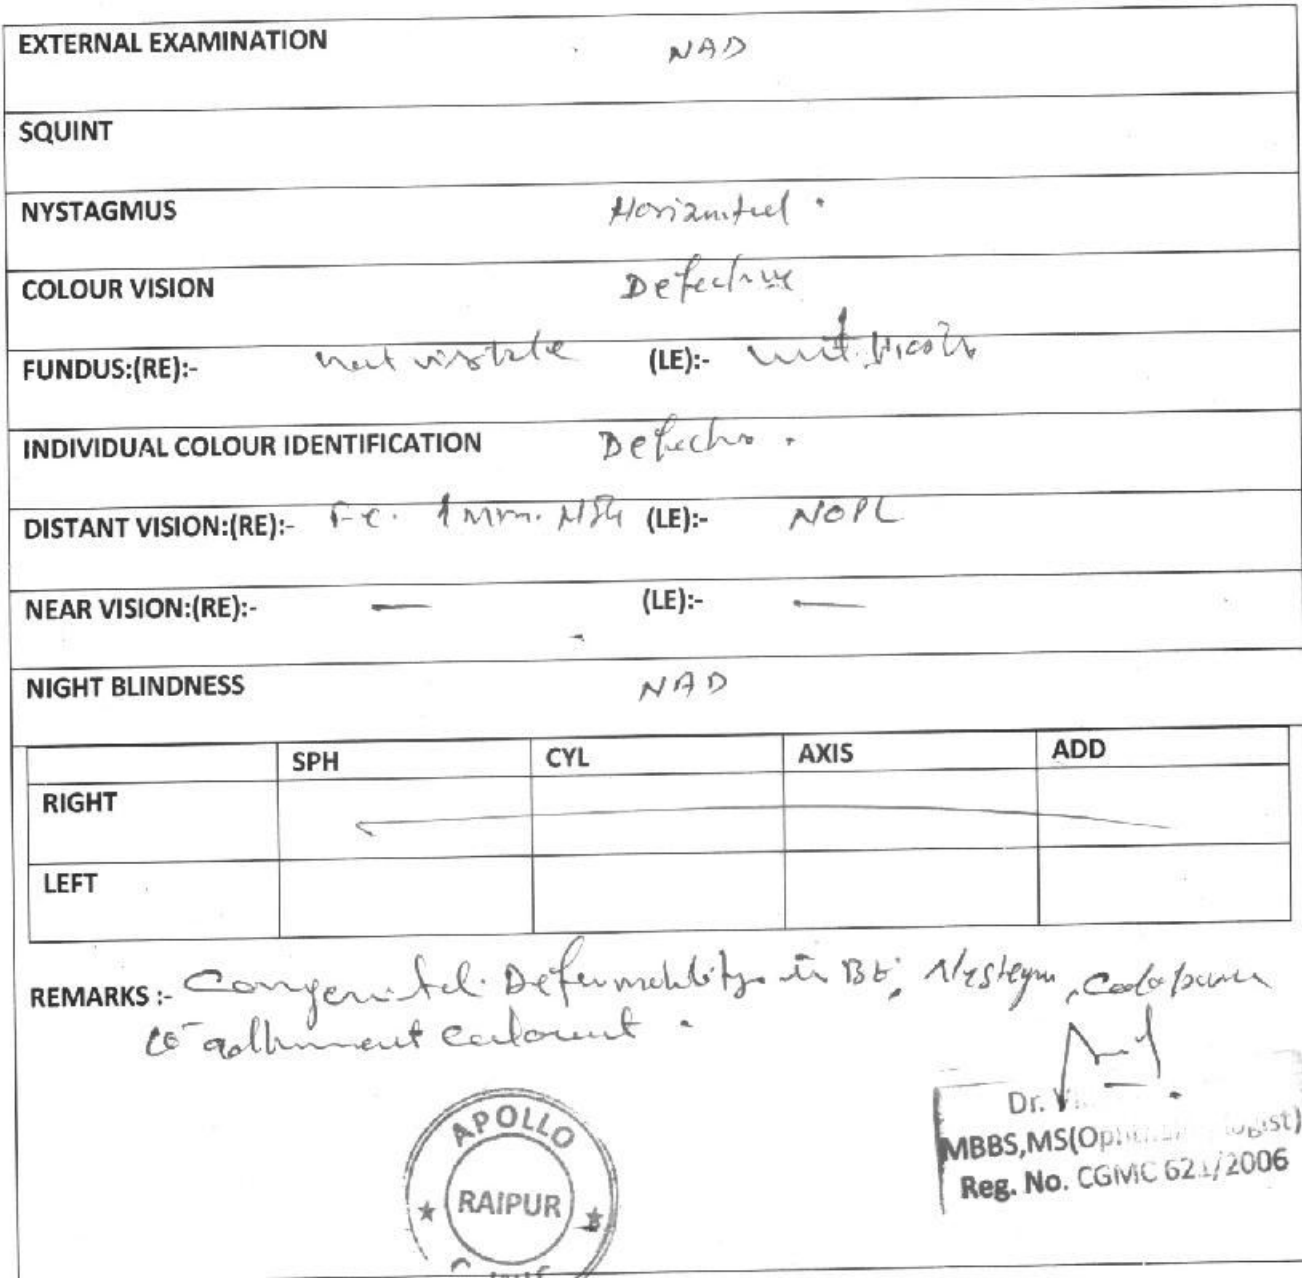 EXTERNAL EXAMINATION NAD
SQUINT
NYSTAGMUS Horizontal .
COLOUR VISION Defective
FUNDUS:(RE):- not visible (LE):-
INDIVIDUAL COLOUR IDENTIFICATION Defective .
DISTANT VISION:(RE):- F.C. (LE):- NOPL
NEAR VISION:(RE):- — (LE):- —
NIGHT BLINDNESS NAD
SPH CYL AXIS ADD
RIGHT
LEFT
REMARKS :- Congenital in BE,
APOLLO
RAIPUR
Dr.
MBBS,MS(Ophthalmologist)
Reg. No. CGMC 621/2006